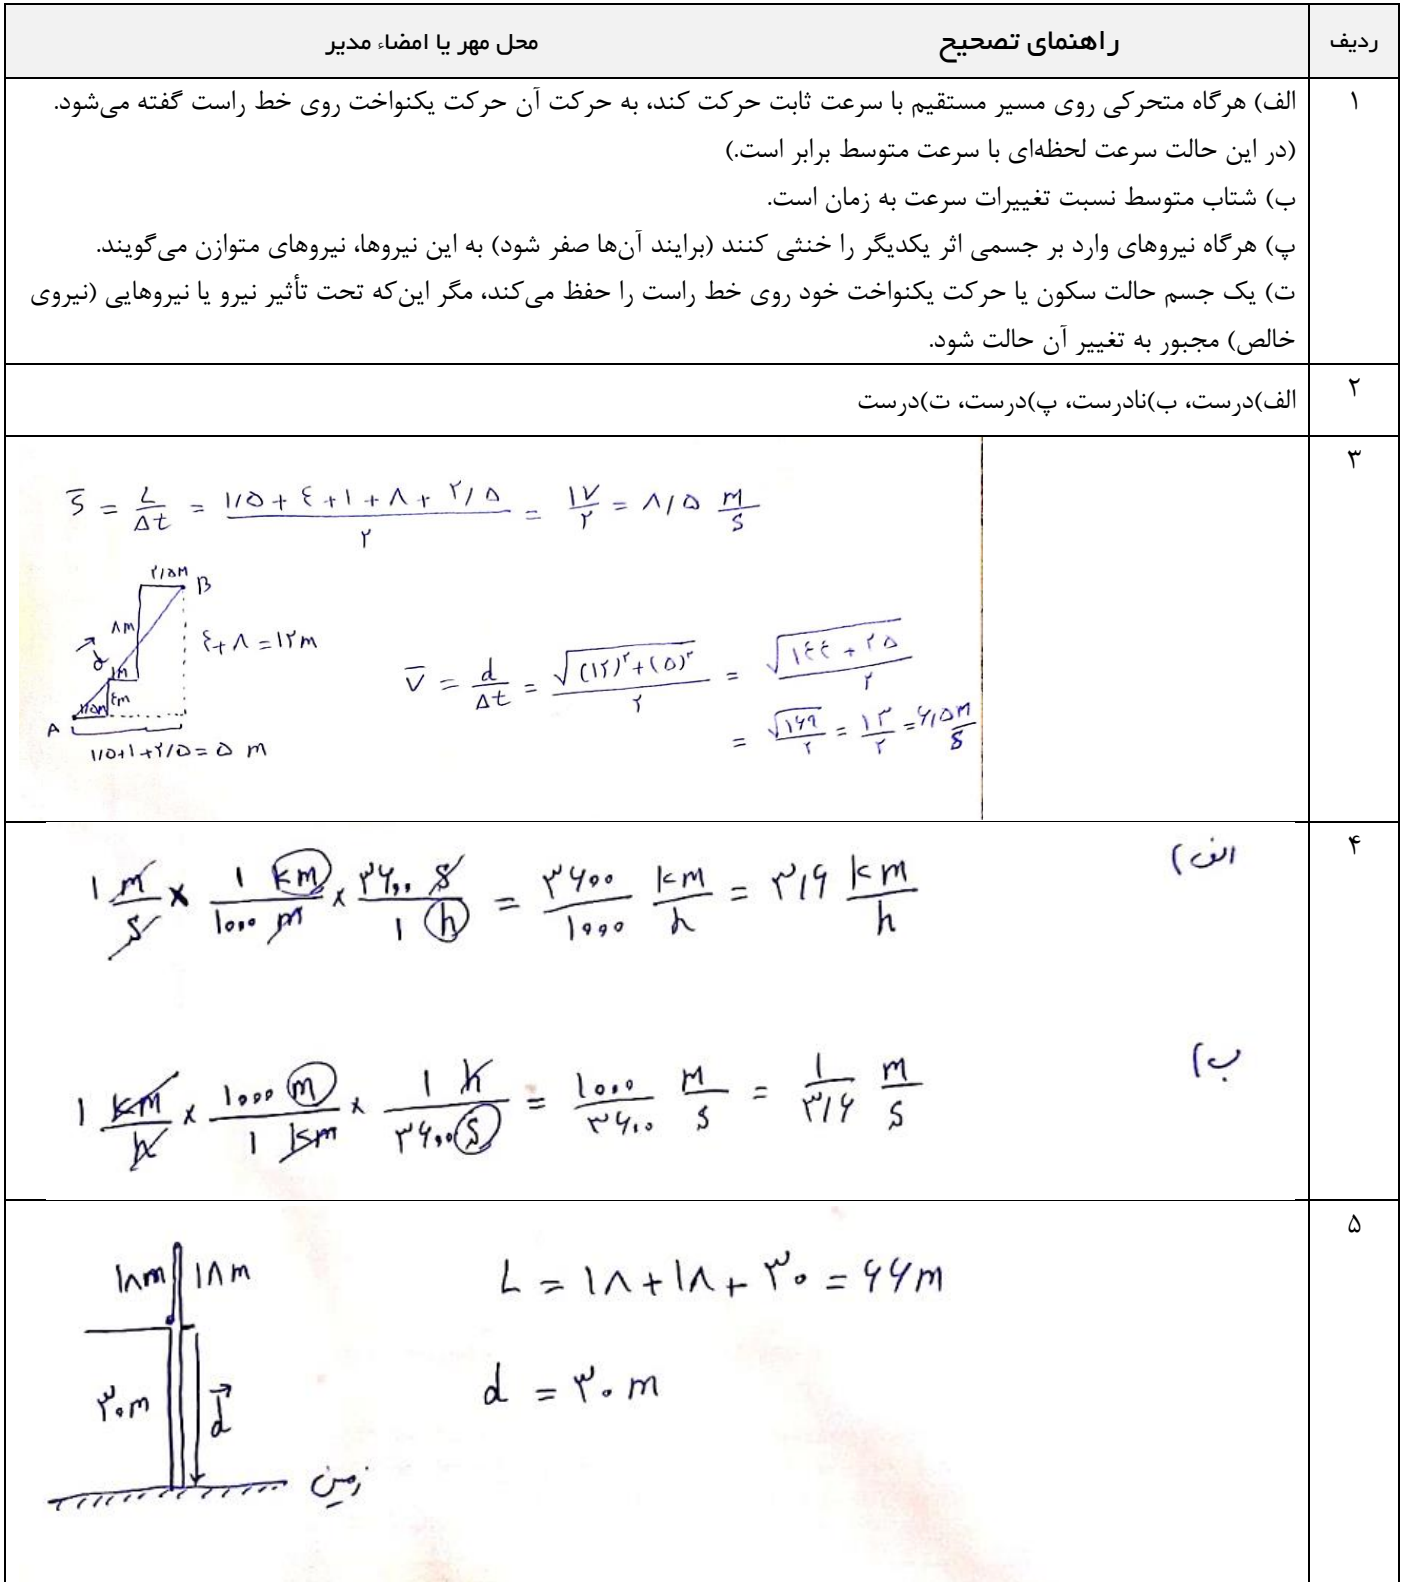 ردیف راهنمای تصحیح محل مهر یا امضاء مدیر
۱
الف) هرگاه متحرکی روی مسیر مستقیم با سرعت ثابت حرکت کند، به حرکت آن حرکت یکنواخت روی خط راست گفته می‌شود.
(در این حالت سرعت لحظه‌ای با سرعت متوسط برابر است.)
ب) شتاب متوسط نسبت تغییرات سرعت به زمان است.
پ) هرگاه نیروهای وارد بر جسمی اثر یکدیگر را خنثی کنند (برایند آن‌ها صفر شود) به این نیروها، نیروهای متوازن می‌گویند.
ت) یک جسم حالت سکون یا حرکت یکنواخت خود روی خط راست را حفظ می‌کند، مگر این‌که تحت تأثیر نیرو یا نیروهایی (نیروی
خالص) مجبور به تغییر آن حالت شود.
۲
الف)درست، ب)نادرست، پ)درست، ت)درست
۳
S̄ = L/Δt = (۱/۵ + ٤ + ۱ + ۸ + ۲/۵)/۲ = ۱۷/۲ = ۸/۵ m/s
۲/۵m B
۸m
٤+۸ = ۱۲m
d⃗
۱m
٤m
۱/۵m
A
۱/۵+۱+۲/۵ = ۵ m
V̄ = d/Δt = √((۱۲)²+(۵)²)/۲ = √(۱٤٤ + ۲۵)/۲
= √۱۶۹/۲ = ۱۳/۲ = ۶/۵ m/s
۴
الف)
۱ m/s × ۱ km/۱۰۰۰ m × ۳۶۰۰ s/۱ h = ۳۶۰۰/۱۰۰۰ km/h = ۳/۶ km/h
ب)
۱ km/h × ۱۰۰۰ m/۱ km × ۱ h/۳۶۰۰ s = ۱۰۰۰/۳۶۰۰ m/s = ۱/۳/۶ m/s
۵
۱۸m ۱۸m
L = ۱۸+۱۸+۳۰ = ۶۶m
۳۰m d⃗
d = ۳۰m
زمین